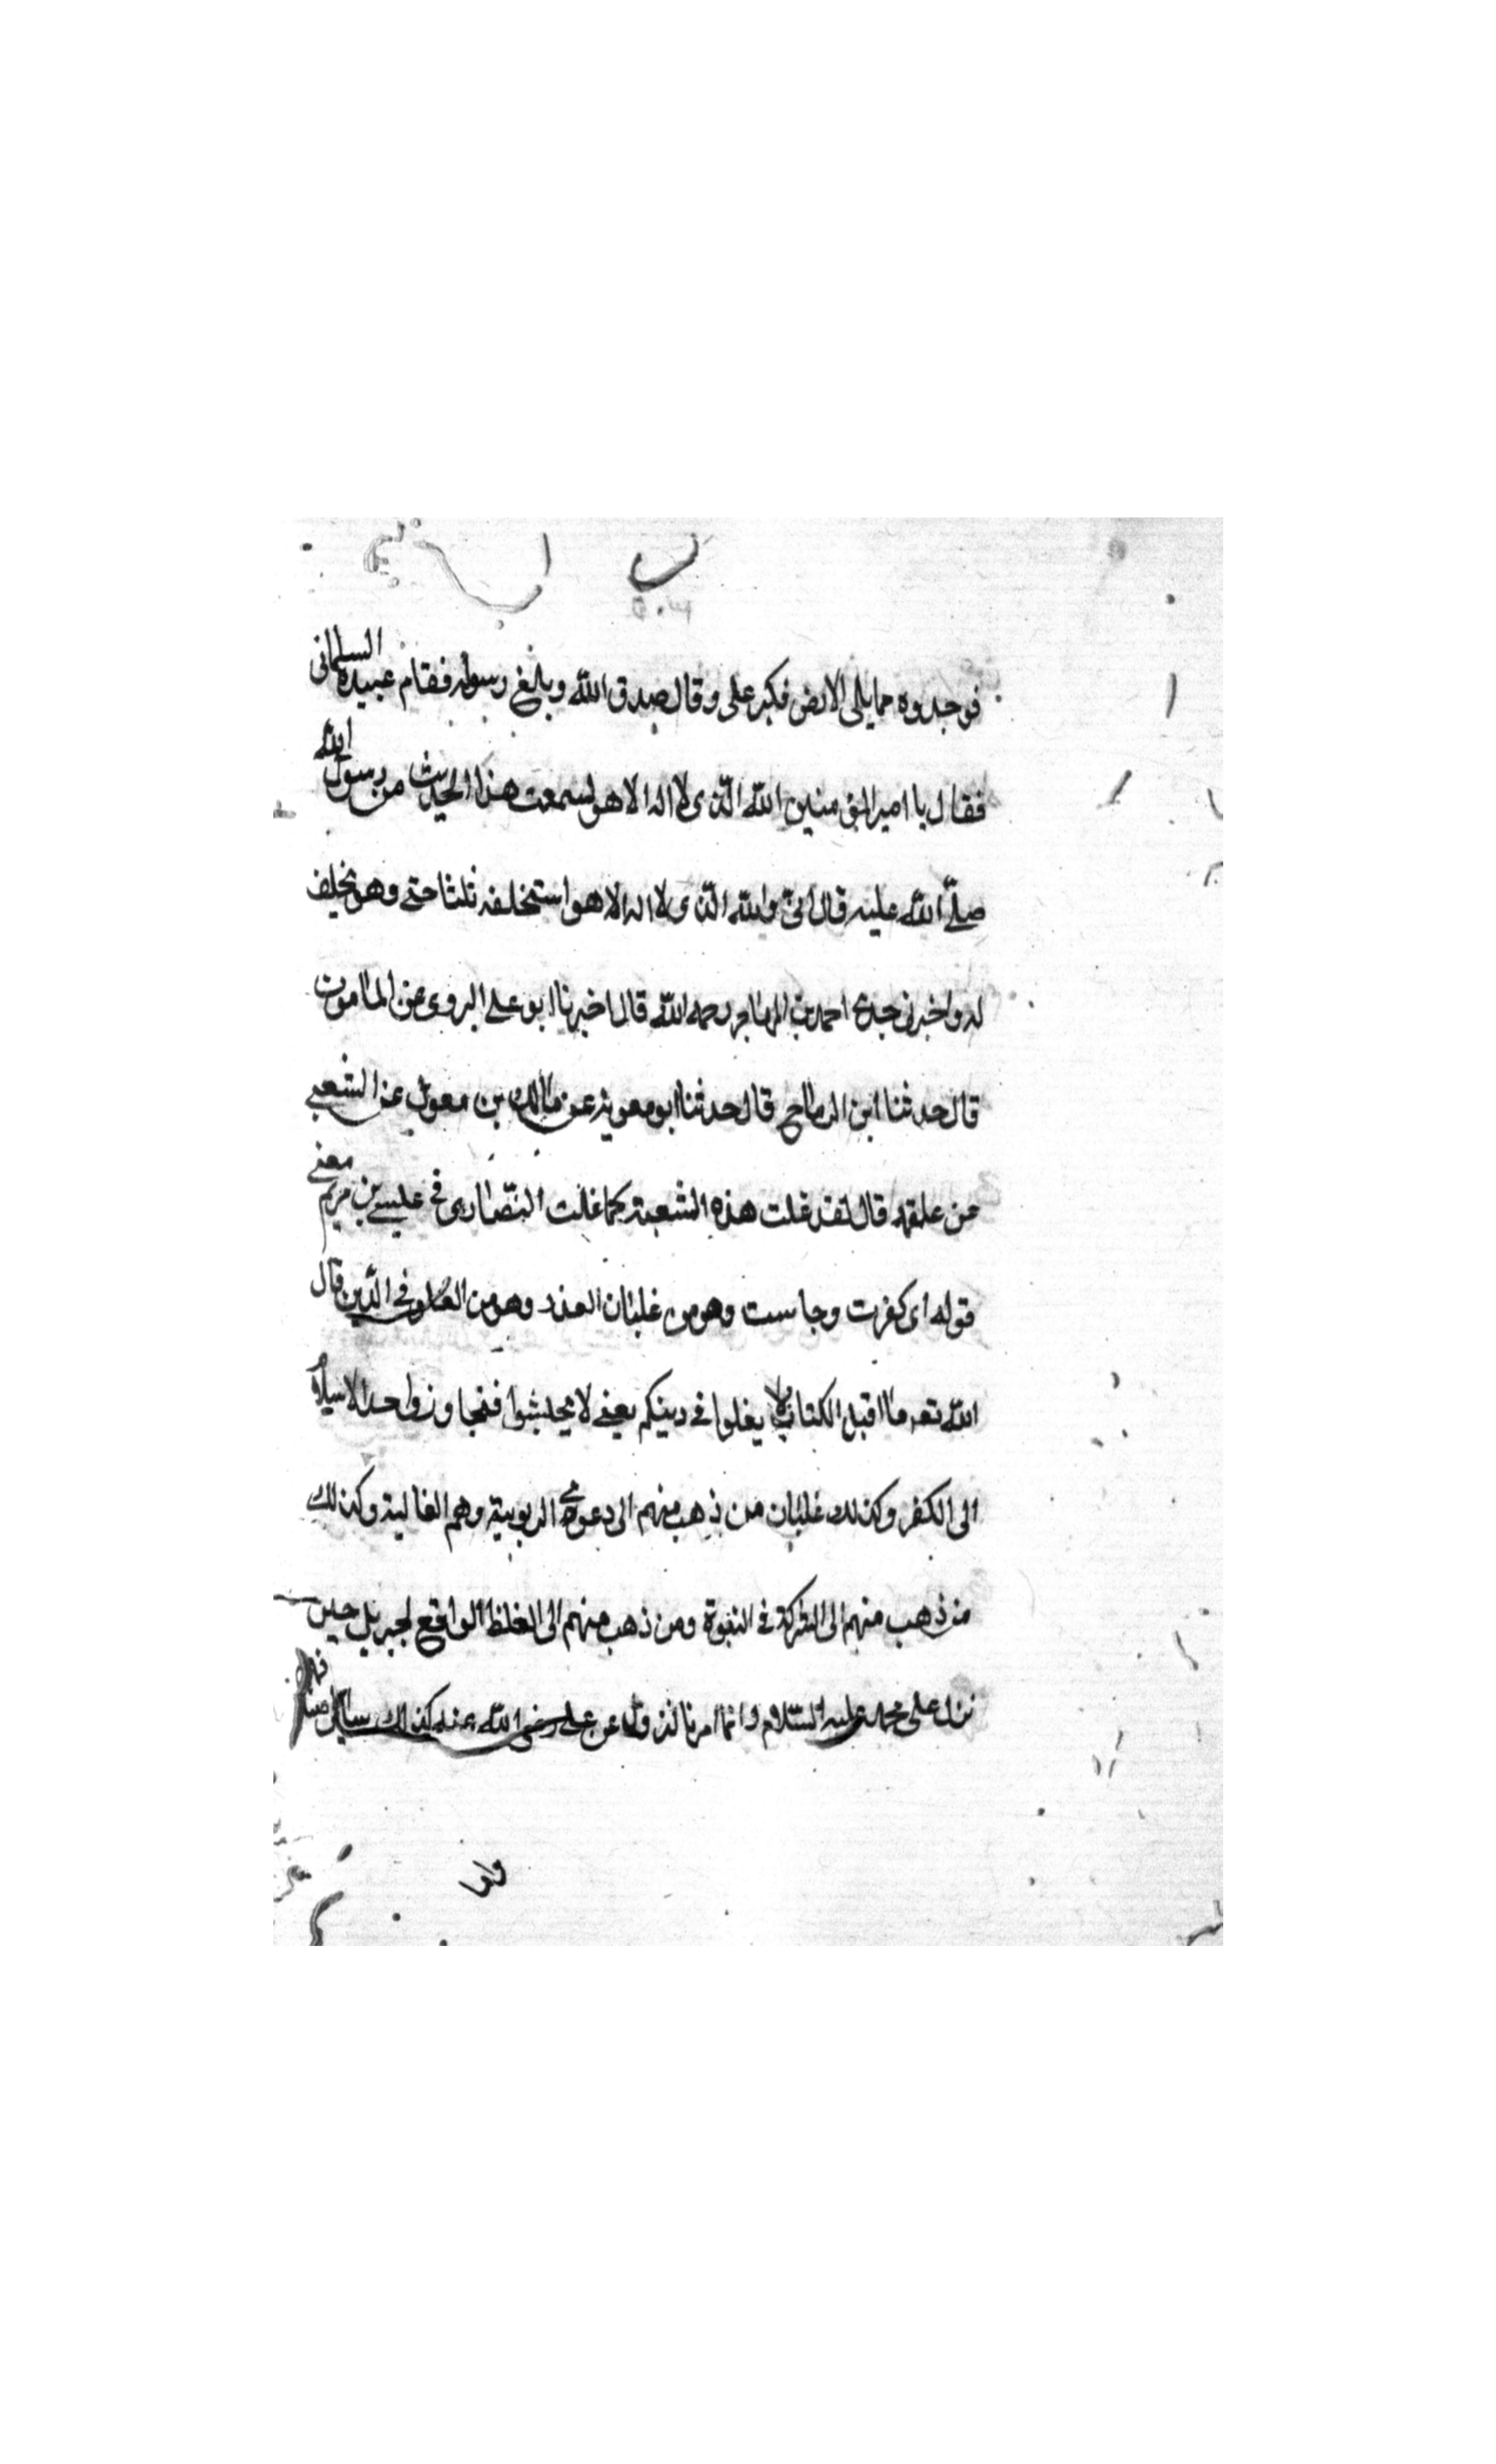 فوجدوه مما يلي الارض فكبر علي وقال صدق الله وبلغ رسوله فقام عبيدة السلماني
فقال يا امير المؤمنين الله الذي لا اله الا هو لسمعت هذا الحديث من رسول الله
صلّى الله عليه قال اي والله الذي لا اله الا هو استحلفه ثلثا حتى وهو يحلف
له واخبرني جدي احمد بن المهاجر رحمه الله قال اخبرنا ابو علي الهروي عن المامون
قال حدثنا ابن الرماح قال حدثنا ابو معوية عن مالك بن معول عن الشعبي
عن علقمه قال لقد غلت هذه الشعبة كما غلت النصارى في عيسى بن مريم معنى
قوله اى كفرت وجاست وهو من غليان العدد وهو من الغلو في الدين قال
الله تعه يا اهل الكتاب لا يغلوا في دينكم يعني لا فتجاوزوا حد الاسلام
الى الكفر وكذلك غليان من ذهب منهم الى دعوى الربوبية وهم الغالية وكذلك
من ذهب منهم الى الشركة في النبوة ومن ذهب منهم الى الغلط الواقع لجبريل حين
نزل على محمد عليه السّلام وانما امرنا عن علي رضي الله عنه كذلك